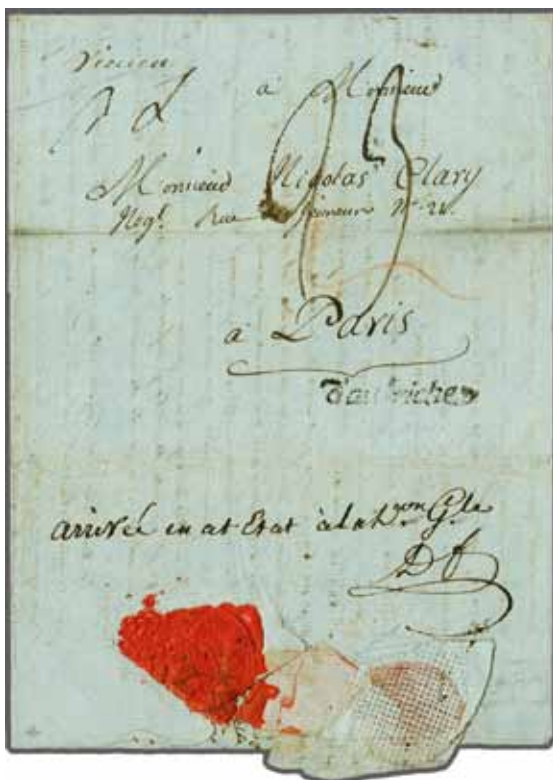 Vienne
à Monsieur
Monsieur Nicolas Clary
Negt. Rue N° 24.
à Paris
d'autriche
arrivée en cet Etat à la hon Gle